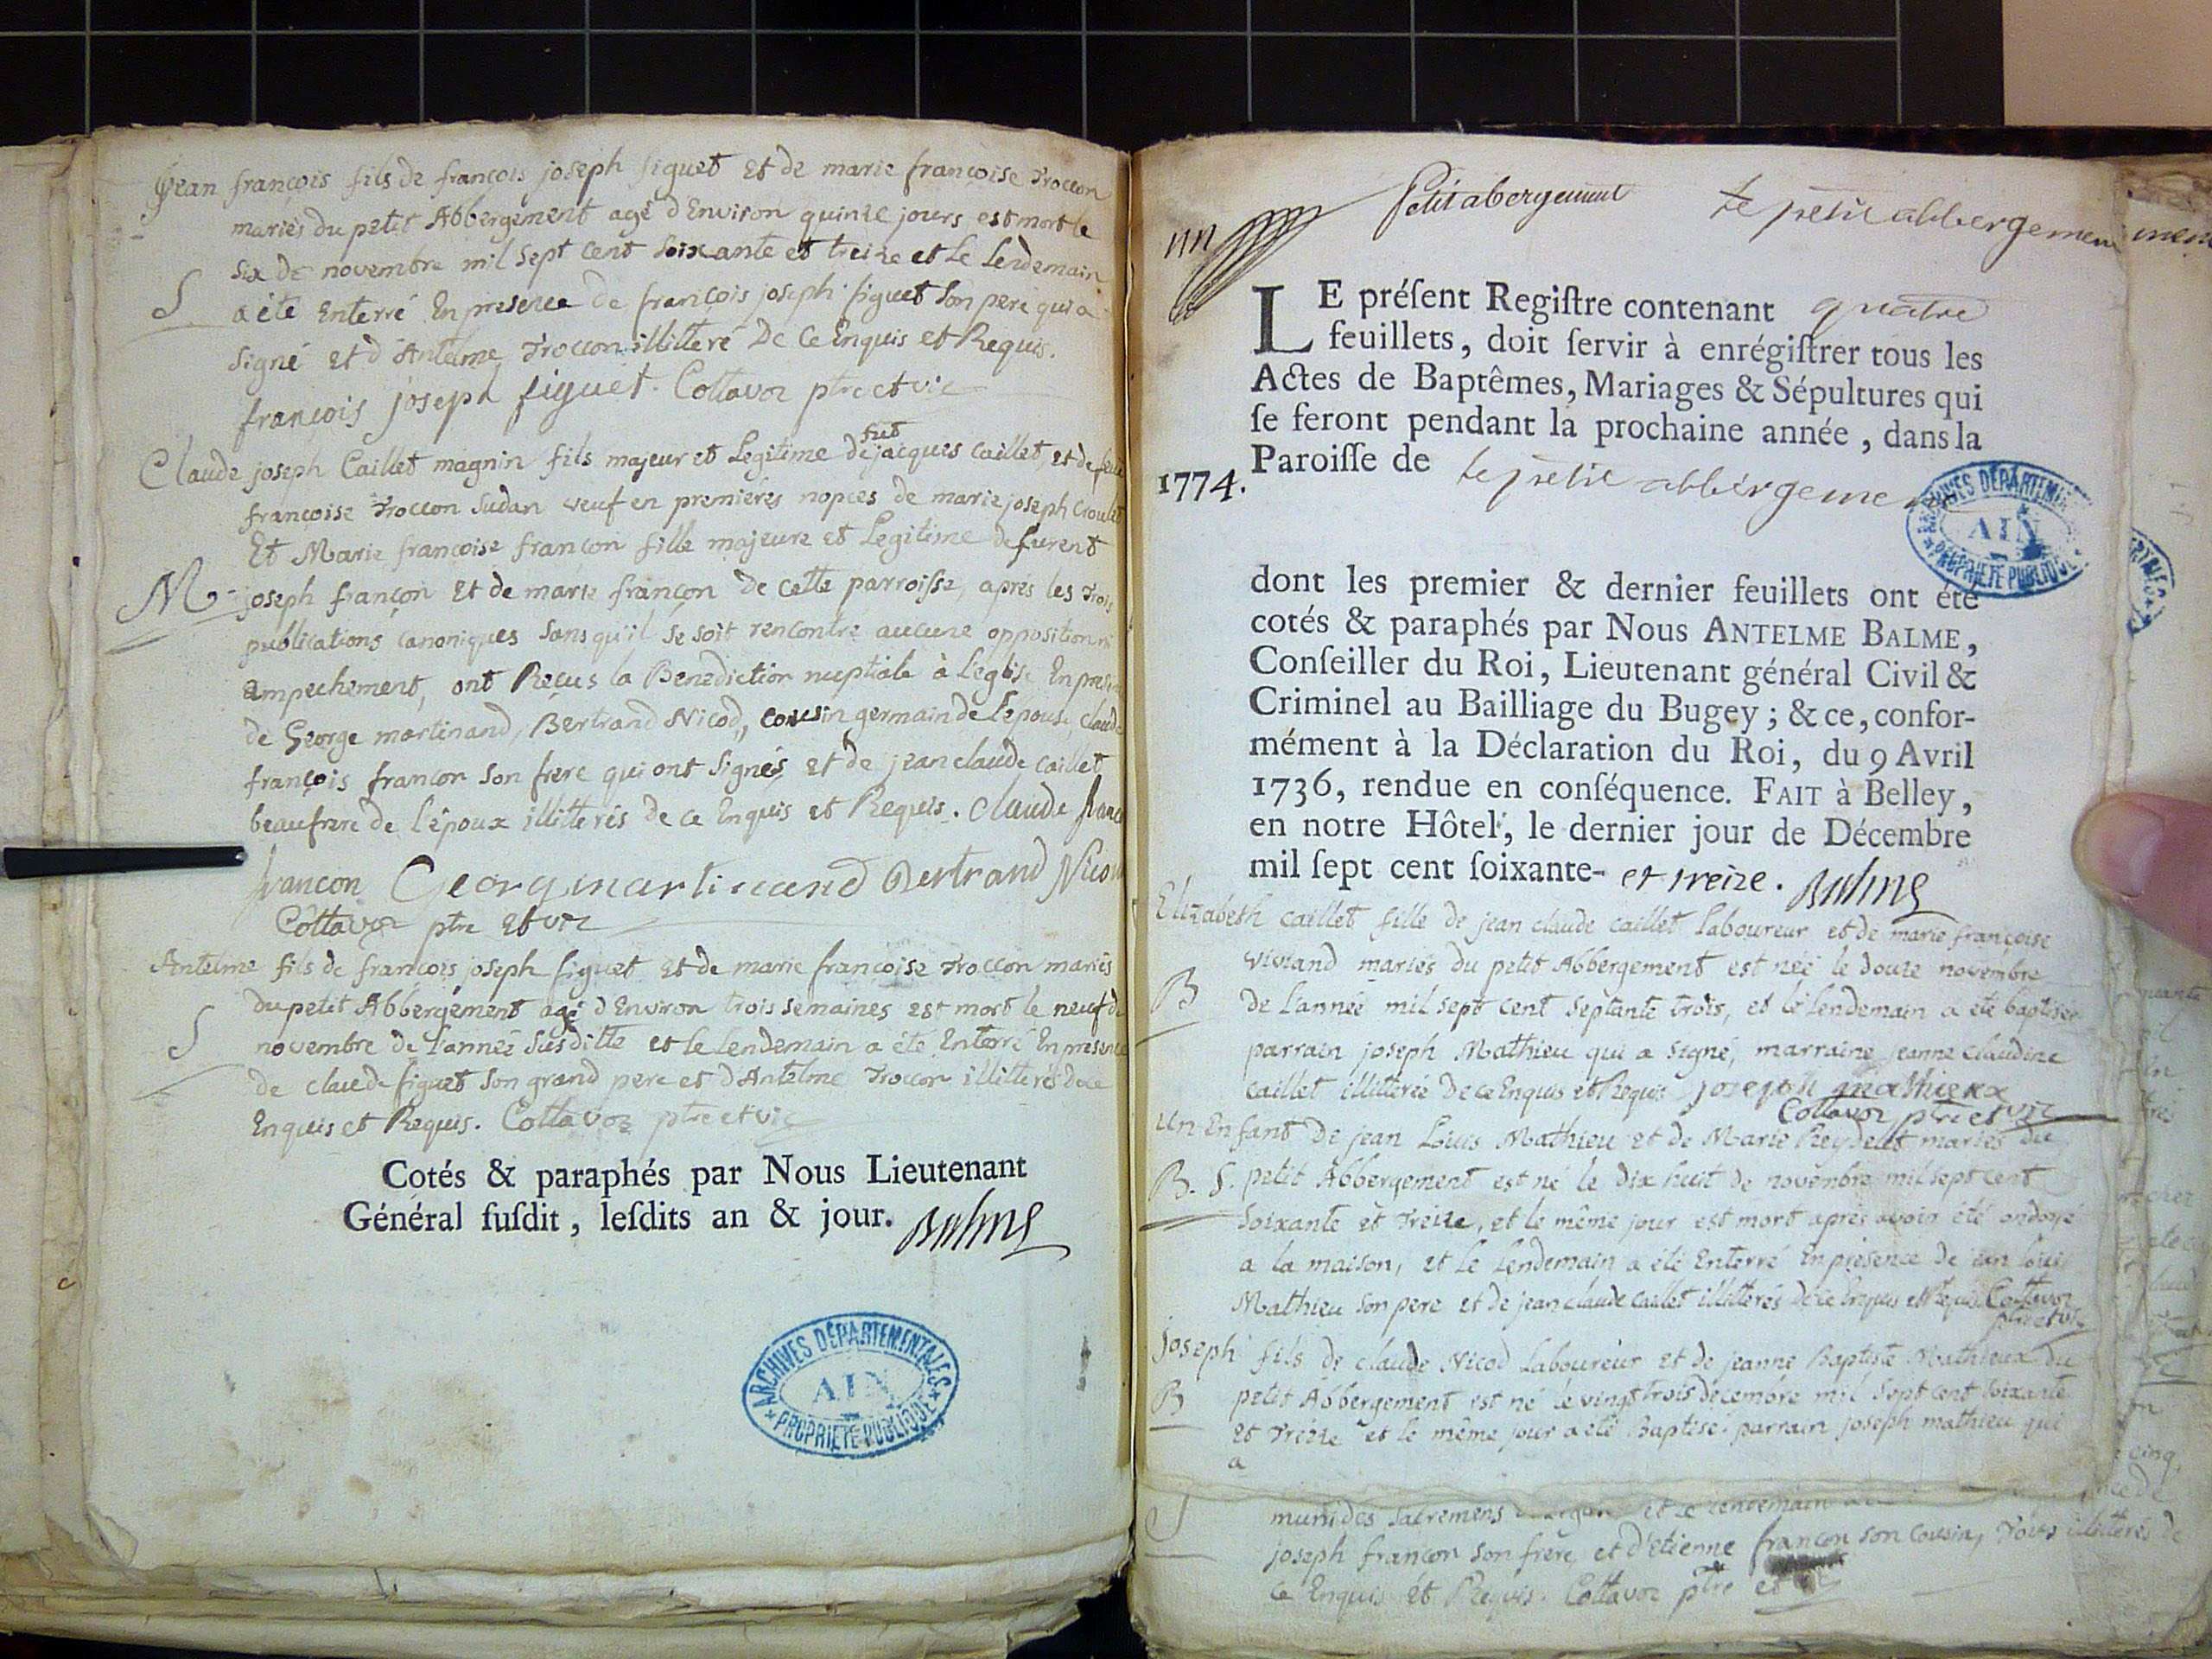 Jean françois fils de françois joseph figuet et de marie françoise Troccon
mariés du petit Abbergement agé d'Environ quinze jours est mort le
six de novembre mil sept cent soixante et treize et Le Lendemain
S a été Enterré En presence de françois joseph figuet son pere qui a
signé et d'Antelme Troccon illitteré De Ce Enquis et Requis.
françois joseph figuet. Collavoz ptre et vic
Claude joseph Caillet magnin fils majeur et Legitime de fut jacques caillet, et de feue
francoise Troccon Sudan veuf en premieres nopces de marie joseph
Et Marie francoise francon fille majeure et Legitime de furent
M joseph françon et de marie françon De cette parroisse, apres les Trois
publications canoniques sans qu'il se soit rencontré aucune opposition ni
Empechement, ont Reçus la Benediction nuptiale à l'eglise En
de George martinand, Bertrand Nicod, cousin germain de L'epouse, claude
françois francon son frere qui ont signés, et de jean claude caillet
beaufrere de l'époux illitterés de ce Enquis et Requis. Claude
francon Georg martinand Bertrand Nicod
Collavoz ptre et vic
Antelme fils de françois joseph figuet et de marie francoise Troccon mariés
du petit Abbergement agé d'Environ trois semaines est mort le neuf de
S novembre de l'année susditte et le lendemain a été Enterré En presence
de claude figuet son grand pere et d'Antelme Troccon illitterés de ce
Enquis et Requis. Collavoz ptre et vic
Cotés & paraphés par Nous Lieutenant
Général susdit, lesdits an & jour. Balme
ARCHIVES DÉPARTEMENTALES
AIN
PROPRIÉTÉ PUBLIQUE
Petit abergement le petit abbergement
LE présent Registre contenant quatre
feuillets, doit servir à enrégistrer tous les
Actes de Baptêmes, Mariages & Sépultures qui
se feront pendant la prochaine année, dans la
1774. Paroisse de le petit abbergement
ARCHIVES DÉPARTEMENTALES
AIN
PROPRIÉTÉ PUBLIQUE
dont les premier & dernier feuillets ont été
cotés & paraphés par Nous ANTELME BALME,
Conseiller du Roi, Lieutenant général Civil &
Criminel au Bailliage du Bugey; & ce, confor-
mément à la Déclaration du Roi, du 9 Avril
1736, rendue en conséquence. FAIT à Belley,
en notre Hôtel, le dernier jour de Décembre
mil sept cent soixante- et treize. Balme
Elizabeth caillet fille de jean claude caillet Laboureur et de marie françoise
Viviand mariés du petit Abbergement est née le douze novembre
B de L'année mil sept cent septante trois, et le lendemain a été baptisée
parrain joseph Mathieu qui a signé, marraine jeanne claudine
caillet illitterée De ce Enquis et Requis joseph mathieux
Collavoz ptre et vic
Un Enfant De jean Louis Mathieu et de Marie Reydelet mariés du
B. S. petit Abbergement est né le dix huit de novembre mil sept cent
soixante et treize, et le même jour est mort apres avoir été ondoyé
a la maison, et Le Lendemain a été Enterré En présence de jean louis
Mathieu son pere et de jean claude caillet illitterés de ce Enquis et Requis Collavoz
ptre et vic
joseph fils de claude Nicod Laboureur et de jeanne Baptiste Mathieux du
B petit Abbergement est né le vingt trois decembre mil sept cent soixante
et treize et le même jour a été Baptisé parrain joseph mathieu qui
a
S muni des sacremens et le lendemain
joseph françon son frere et d'etienne françon son cousin, Tous illitterés de
ce Enquis et Requis. Collavoz ptre et vic